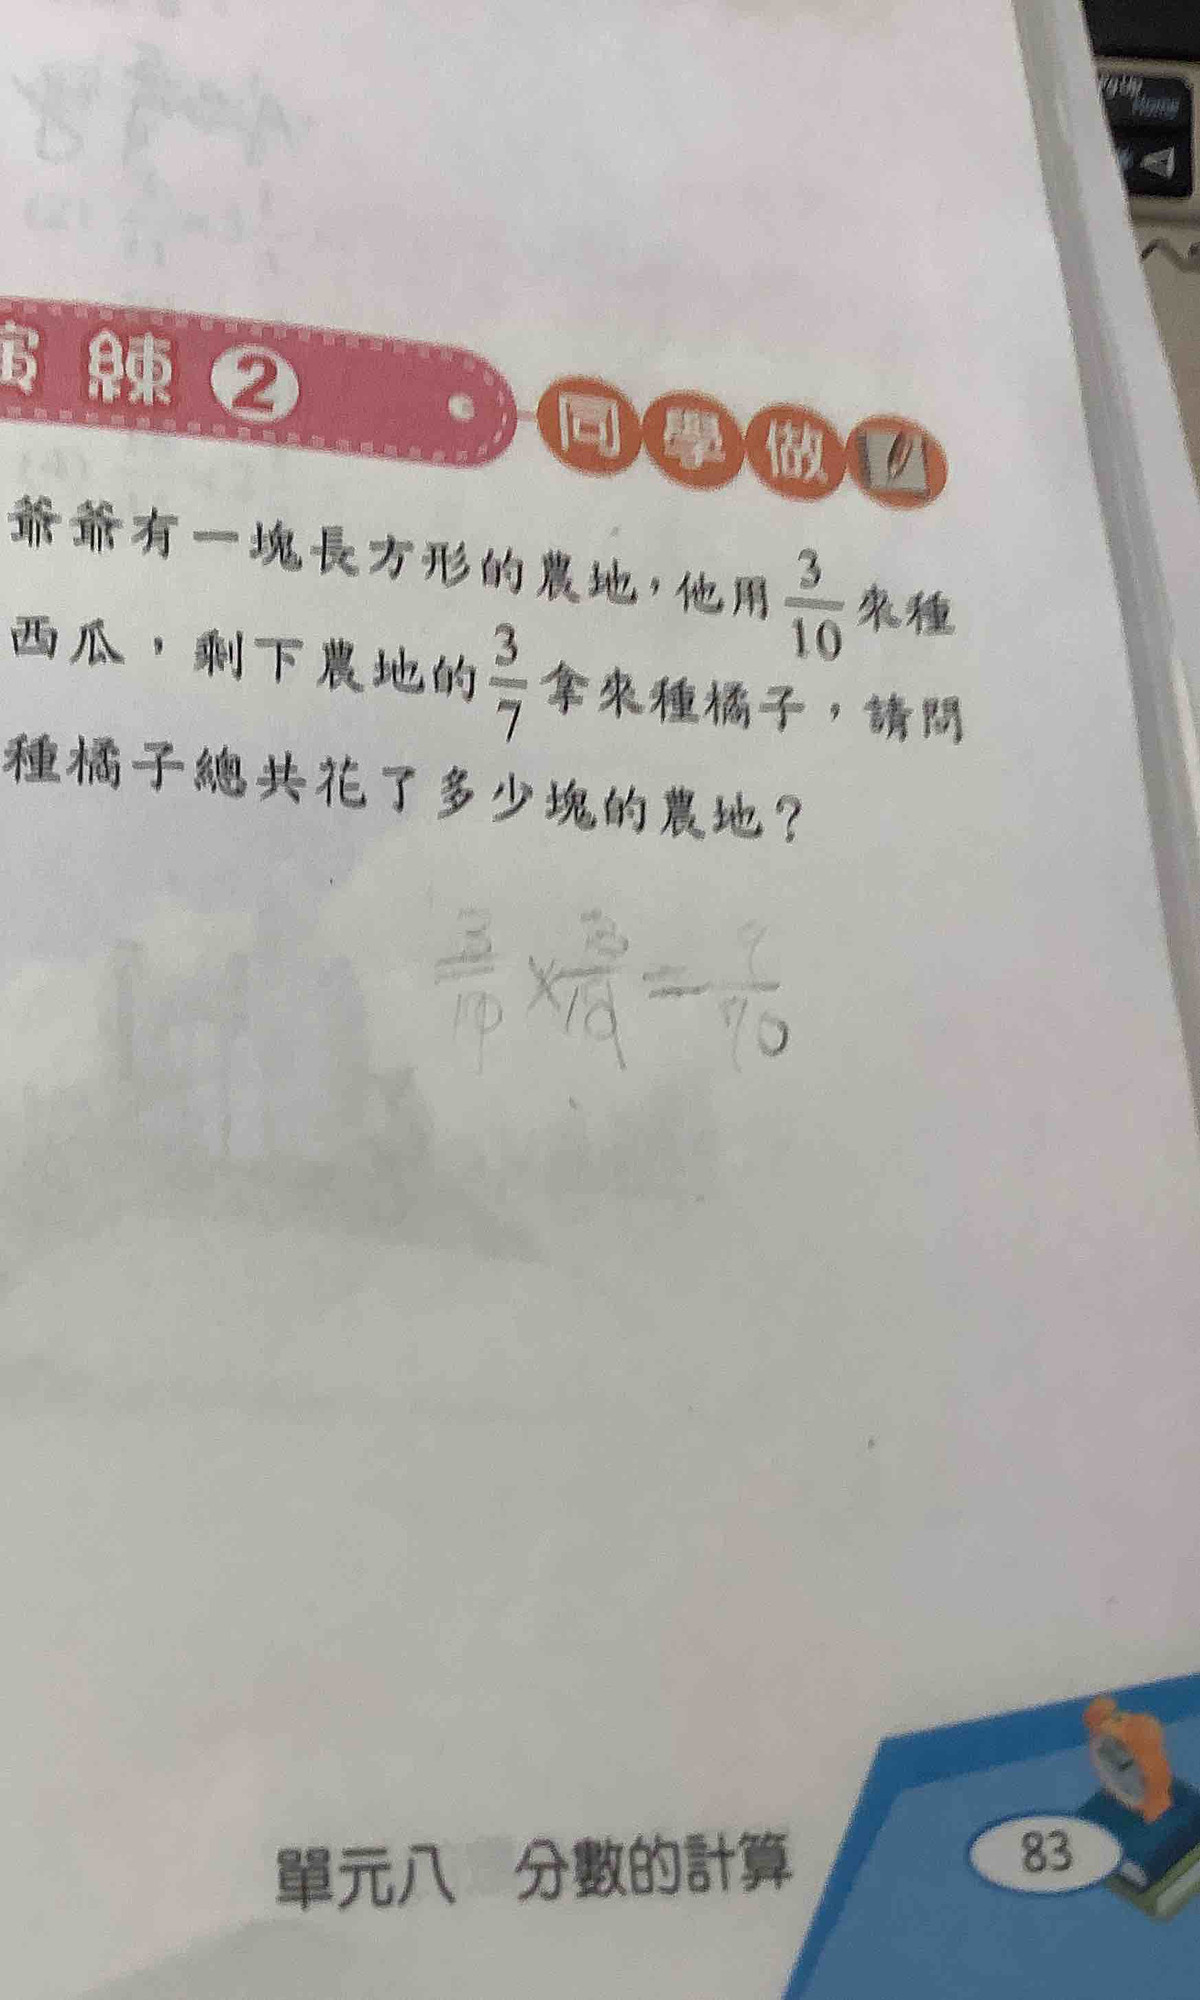 練 2 同學做
爺爺有一塊長方形的農地，他用 3/10 來種
西瓜，剩下農地的 3/7 拿來種橘子，請問
種橘子總共花了多少塊的農地？
= 9/70
單元八 分數的計算 83